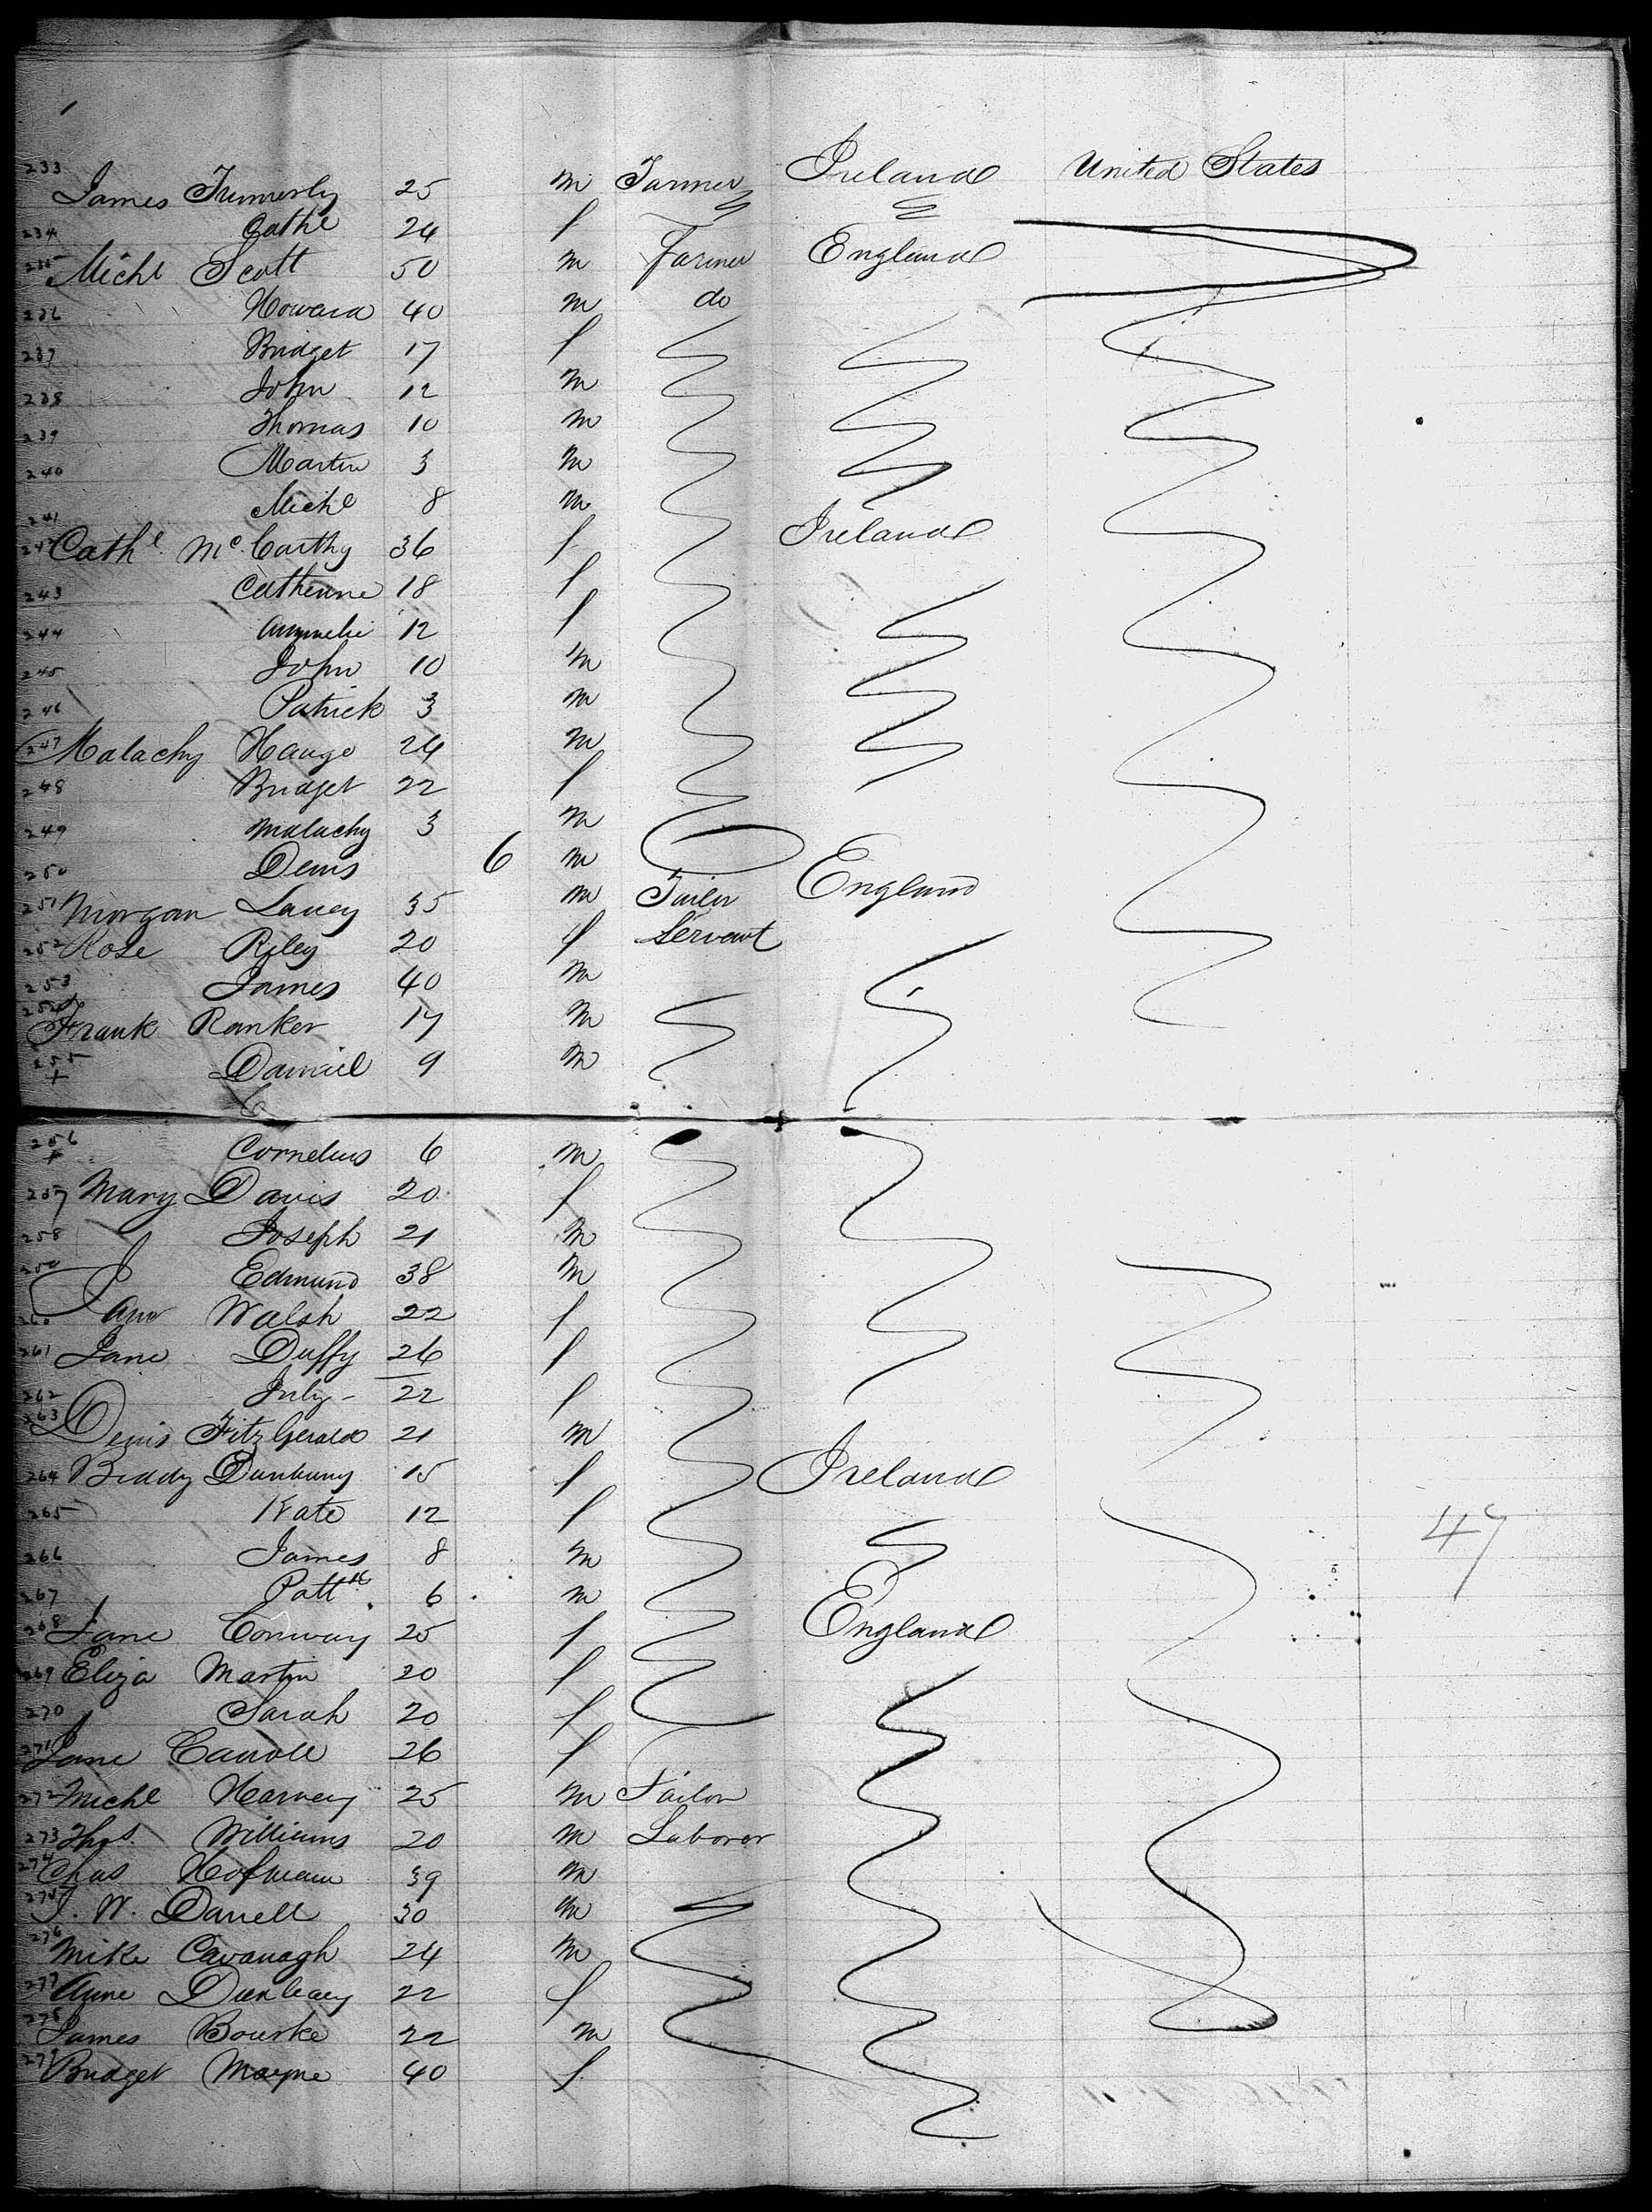 233 James Tummerly 25 m Farmer Ireland United States
234 Cathe 24 f
235 Michl Scott 50 m Farmer England
236 Howard 40 m do
237 Bridget 17 f
238 John 12 m
239 Thomas 10 m
240 Martin 3 m
241 Michl 8 m
242 Cathe. Mc.Carthy 36 f Ireland
243 Catherine 18 f
244 12 f
245 John 10 m
246 Patrick 3 m
247 Malachy Hauge 24 m
248 Bridget 22 f
249 Malachy 3 m
250 Denis 6 m
251 Morgan Laucy 35 m Tailor England
252 Rose Riley 20 f Servant
253 James 40 m
254 Frank Ranker 17 m
255 + Daniel 9 m
256 + Cornelius 6 m
257 Mary Davis 20 f
258 Joseph 21 m
259 Edmund 38 m
260 Ann Walsh 22 f
261 Jane Duffy 26 f
262 July - 22 f
263 Denis FitzGerald 21 m
264 Biddy 15 f Ireland
265 Kate 12 f
266 James 8 m
267 Pattk 6 m
268 Jane Conway 25 f England
269 Eliza Martin 20 f
270 Sarah 20 f
271 Jane Carroll 26 f
272 Michl Harvey 25 m Tailor
273 Thos. Williams 20 m Laborer
274 Chas Hofmann 39 m
275 J. W. Darrell 30 m
276 Mike Cavanagh 24 m
277 Anne Dunleavy 22 f
278 James Bourke 22 m
279 Bridget Mayne 40 f
47